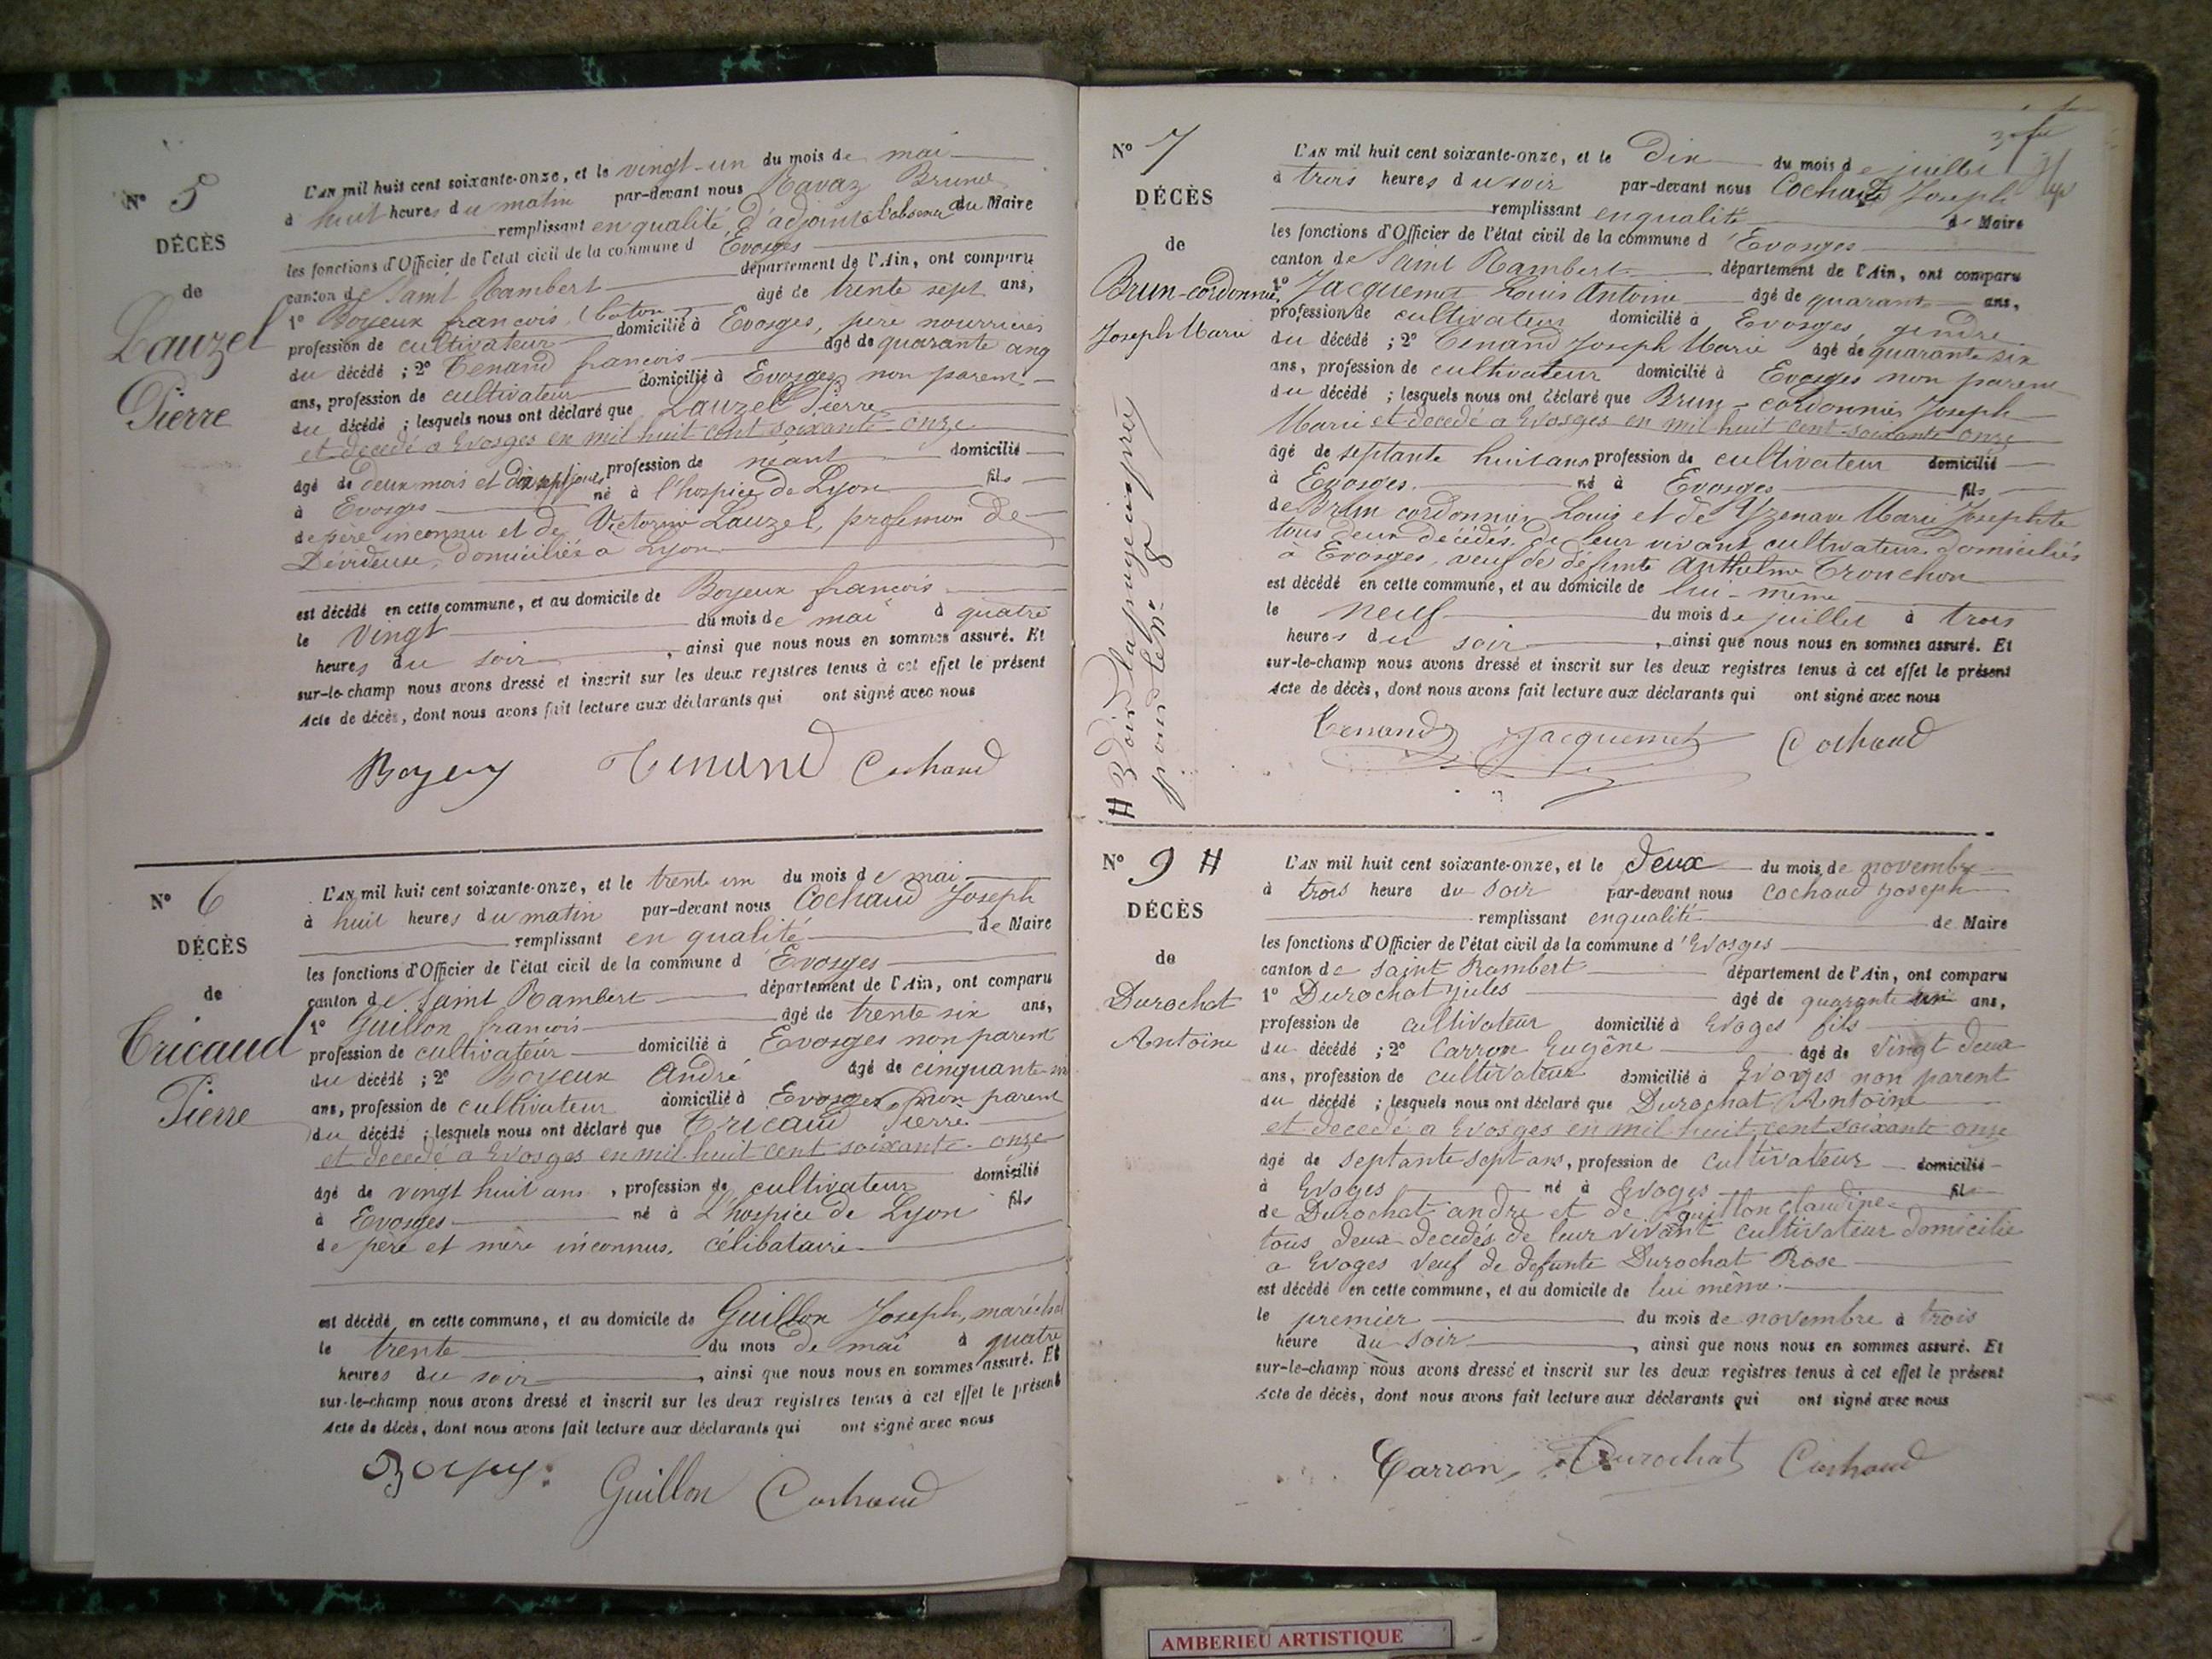 N° 5
DÉCÈS
de
Lauzel
Pierre
L'AN mil huit cent soixante-onze, et le vingt-un du mois de mai
à huit heures du matin par-devant nous Ravaz Bruno
remplissant en qualité d'adjoint à l'absence du Maire
les fonctions d'Officier de l'état civil de la commune d Évosges
canton de Saint Rambert département de l'Ain, ont comparu
1° Boyeux francois, (baton) âgé de trente sept ans,
profession de cultivateur domicilié à Evosges, père nourricier
du décédé ; 2° Tenand francois âgé de quarante cinq
ans, profession de cultivateur domicilié à Evosges non parent
du décédé ; lesquels nous ont déclaré que Lauzel Pierre
et decedé a Evosges en mil huit cent soixante-onze
âgé de deux mois et dix sept jours profession de néant domicilié
à Evosges né à l'hospice de Lyon fils
de père inconnu et de Victorine Lauzel, profession de
Dévideuse, domiciliés a Lyon
est décédé en cette commune, et au domicile de Boyeux francois
le vingt du mois de mai à quatre
heures du soir , ainsi que nous nous en sommes assuré. Et
sur-le-champ nous avons dressé et inscrit sur les deux registres tenus à cet effet le présent
Acte de décès, dont nous avons fait lecture aux déclarants qui ont signé avec nous
Tenand Cochaud
N° 6
DÉCÈS
de
Tricaud
Pierre
L'AN mil huit cent soixante-onze, et le trente un du mois de mai
à huit heures du matin par-devant nous Cochaud Joseph
remplissant en qualité de Maire
les fonctions d'Officier de l'état civil de la commune d Evosges
canton de Saint Rambert département de l'Ain, ont comparu
1° Guillon francois âgé de trente six ans,
profession de cultivateur domicilié à Evosges non parent
du décédé ; 2° Boyeux André âgé de cinquante-six
ans, profession de cultivateur domicilié à Evosges, non parent
du décédé ; lesquels nous ont déclaré que Tricaud Pierre
et decedé a Evosges en mil huit cent soixante-onze
âgé de vingt huit ans , profession de cultivateur domicilié
à Evosges né à L'hospice de Lyon fils
de père et mère inconnus, célibataire
est décédé en cette commune, et au domicile de Guillon Joseph, maréchal
le trente du mois de mai à quatre
heures du soir , ainsi que nous nous en sommes assuré. Et
sur-le-champ nous avons dressé et inscrit sur les deux registres tenus à cet effet le présent
Acte de décès, dont nous avons fait lecture aux déclarants qui ont signé avec nous
Guillon Cochaud
N° 7
DÉCÈS
de
Brun-cordonnier
Joseph Marie
# Voir la page ci après
pour le n° 8
L'AN mil huit cent soixante-onze, et le Dix du mois de juillet
à trois heures du soir par-devant nous Cochaud Joseph
remplissant en qualité de Maire
les fonctions d'Officier de l'état civil de la commune d Evosges
canton de Saint Rambert département de l'Ain, ont comparu
1° Jacquemet Louis Antoine âgé de quarante ans,
profession de cultivateur domicilié à Evosges, gendre
du décédé ; 2° Tenand Joseph Marie âgé de quarante six
ans, profession de cultivateur domicilié à Evosges non parent
du décédé ; lesquels nous ont déclaré que Brun-cordonnier Joseph
Marie et decedé a Evosges en mil huit cent soixante onze
âgé de septante huit ans profession de cultivateur domicilié
à Evosges né à Evosges fils
de Brun cordonnier Louis et de Yzenave Marie Josephte
tous deux décédés, de leur vivant cultivateur domiciliés
à Evosges, veuf de défunte Anthelme Tronchon
est décédé en cette commune, et au domicile de lui-même
le neuf du mois de juillet à trois
heures du soir , ainsi que nous nous en sommes assuré. Et
sur-le-champ nous avons dressé et inscrit sur les deux registres tenus à cet effet le présent
Acte de décès, dont nous avons fait lecture aux déclarants qui ont signé avec nous
Tenand Jacquemet Cochaud
N° 9 #
DÉCÈS
de
Durochat
Antoine
L'AN mil huit cent soixante-onze, et le deux du mois de novembre
à trois heure du soir par-devant nous cochaud joseph
remplissant en qualité de Maire
les fonctions d'Officier de l'état civil de la commune d'Evosges
canton de saint Rambert département de l'Ain, ont comparu
1° Durochat jules âgé de quarante un ans,
profession de cultivateur domicilié à Evoges fils
du décédé ; 2° Carron Eugêne âgé de vingt deux
ans, profession de cultivateur domicilié à Evoges non parent
du décédé ; lesquels nous ont déclaré que Durochat Antoine
et decedé a Evosges en mil huit cent soixante onze
âgé de septante sept ans, profession de cultivateur domicilié
à Evoges né à Evoges fils
de Durochat andré et de Guillon claudine
tous deux decedés de leur vivant cultivateur domicilié
a Evoges veuf de defunte Durochat Rose
est décédé en cette commune, et au domicile de lui même
le premier du mois de novembre à trois
heure du soir , ainsi que nous nous en sommes assuré. Et
sur-le-champ nous avons dressé et inscrit sur les deux registres tenus à cet effet le présent
Acte de décès, dont nous avons fait lecture aux déclarants qui ont signé avec nous
Carron Durochat Cochaud
AMBERIEU ARTISTIQUE